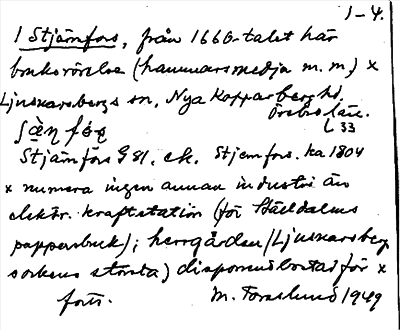 1-4.
1 Stjärnfors, från 1660-talet här
bruksrörelse (hammarsmedja m.m.) x
Ljusnarsbergs sn, Nya Kopparbergs hd,
Örebro län.
L 33
Stjärnfors G 81, ek. Stjernfors. ka 1804
x numera ingen annan industri än
elektr. kraftstation (för Ställdalens
pappersbruk); herrgården (Ljusnarsberg
sockens största) disponentbostad för x
forts. M. Forslund 1949